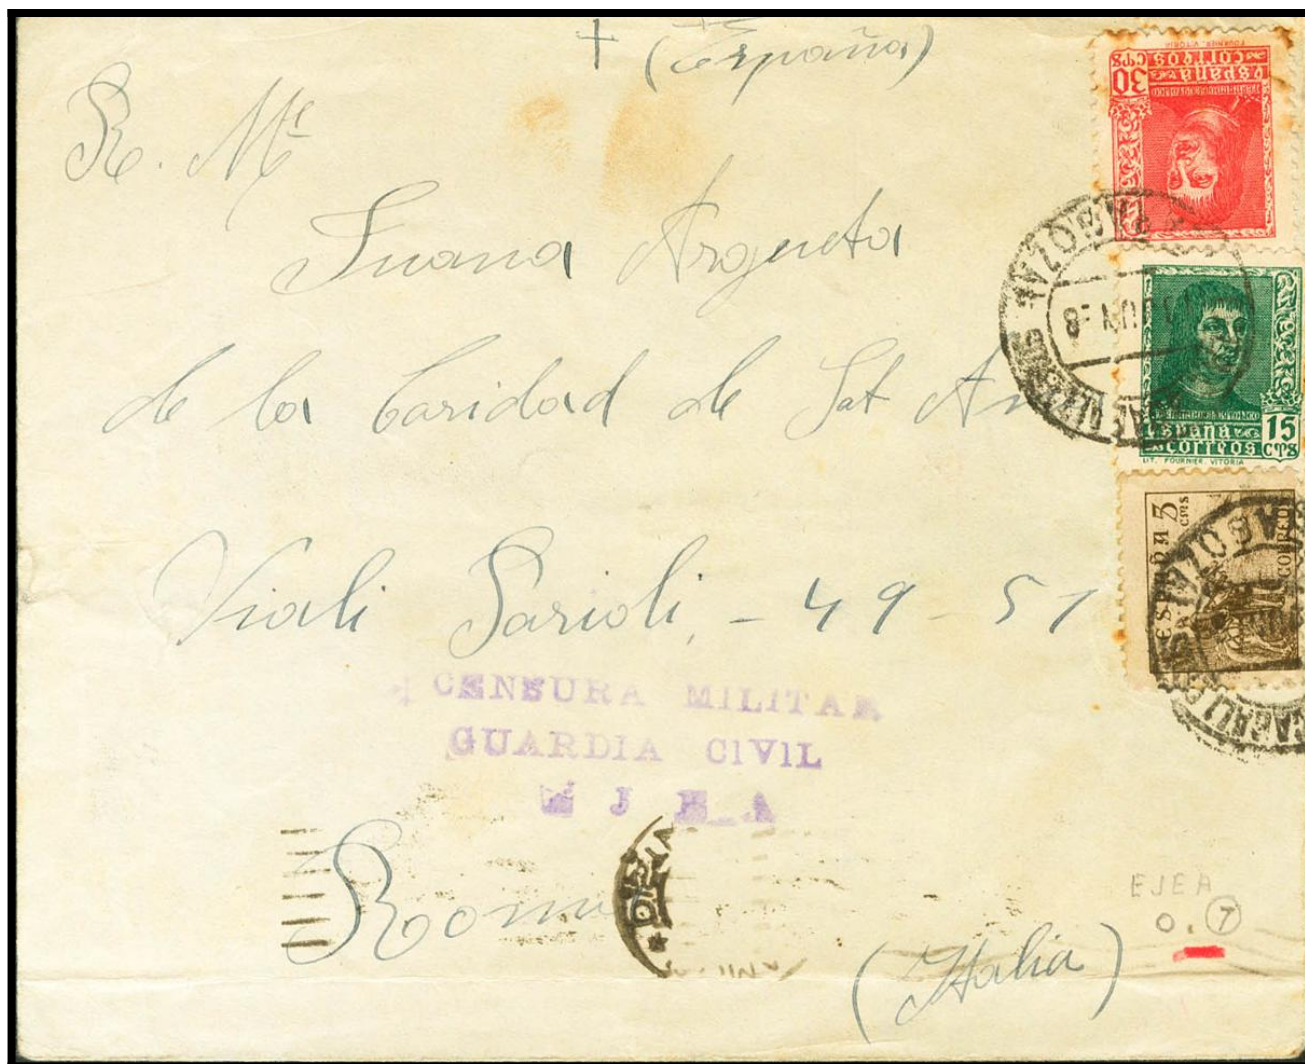 + (España)
R. Me
Juana Argueta
de la Caridad de Sat An
Viali Parioli, - 49 - 51
CENSURA MILITAR
GUARDIA CIVIL
EJEA
Roma
(Italia)
EJEA
O. 7
30 CTS
españa
correos
FOURNIER. VITORIA
españa 15
correos CTS
LIT. FOURNIER. VITORIA
ESPAÑA 5 CTS
CORREOS
ZARAGOZA